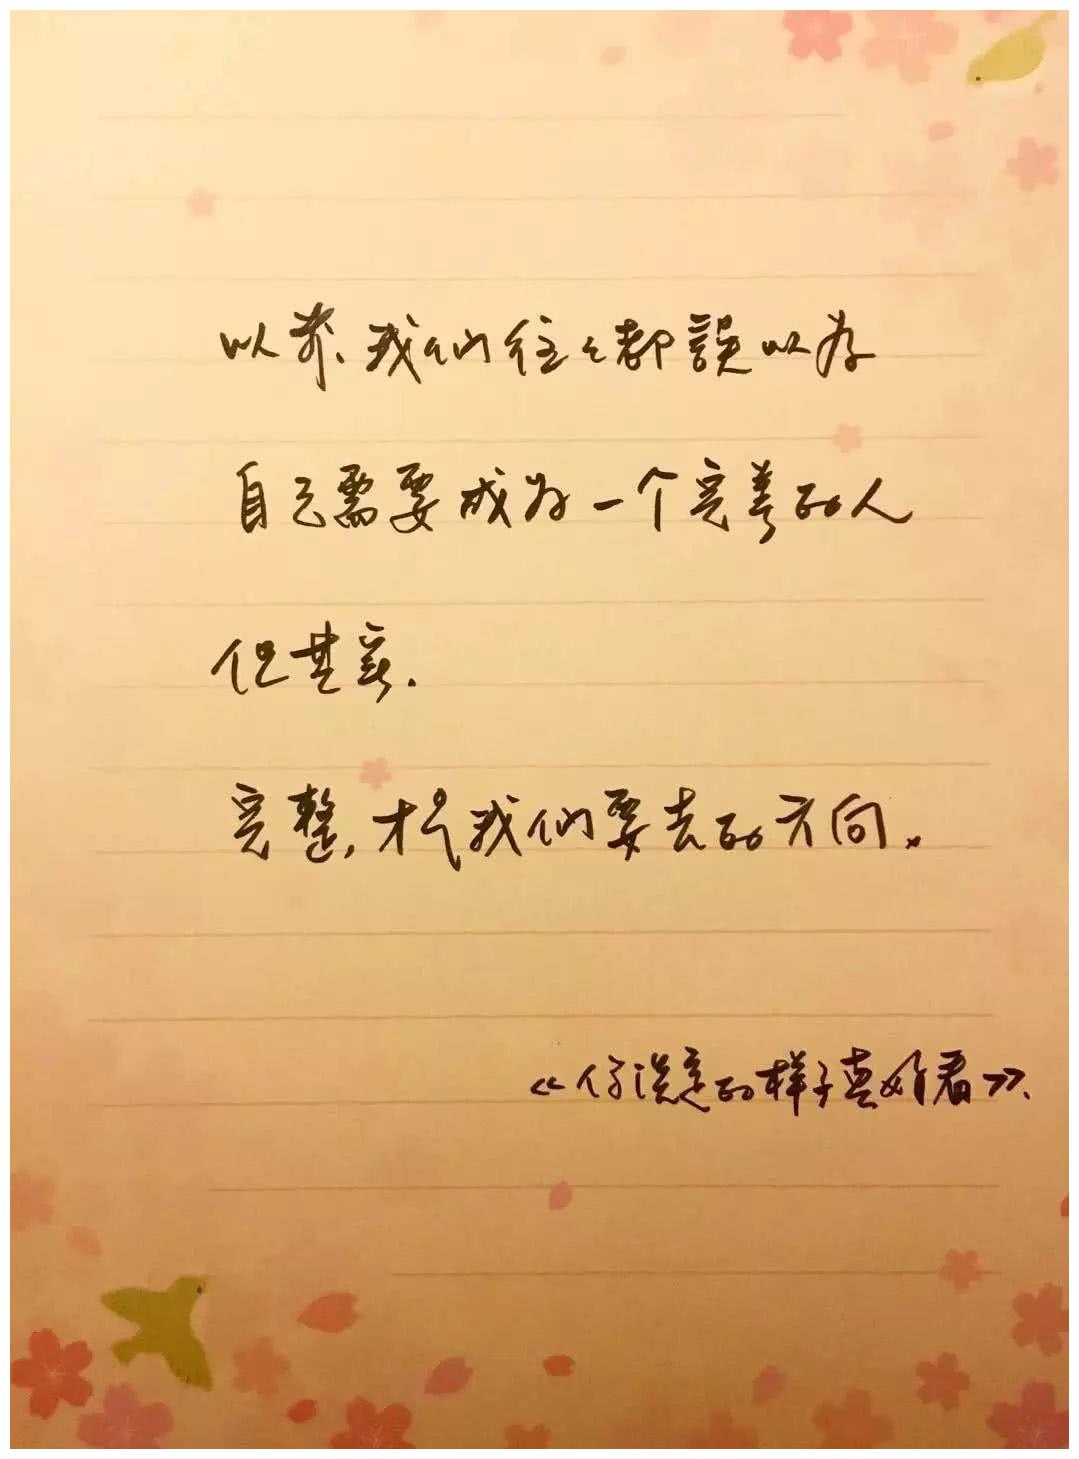 以前、我们往々都誤以为
自己需要成为一个完美的人
但其实.
完整,才是我们要去的方向。
《你淡定的样子真好看》.